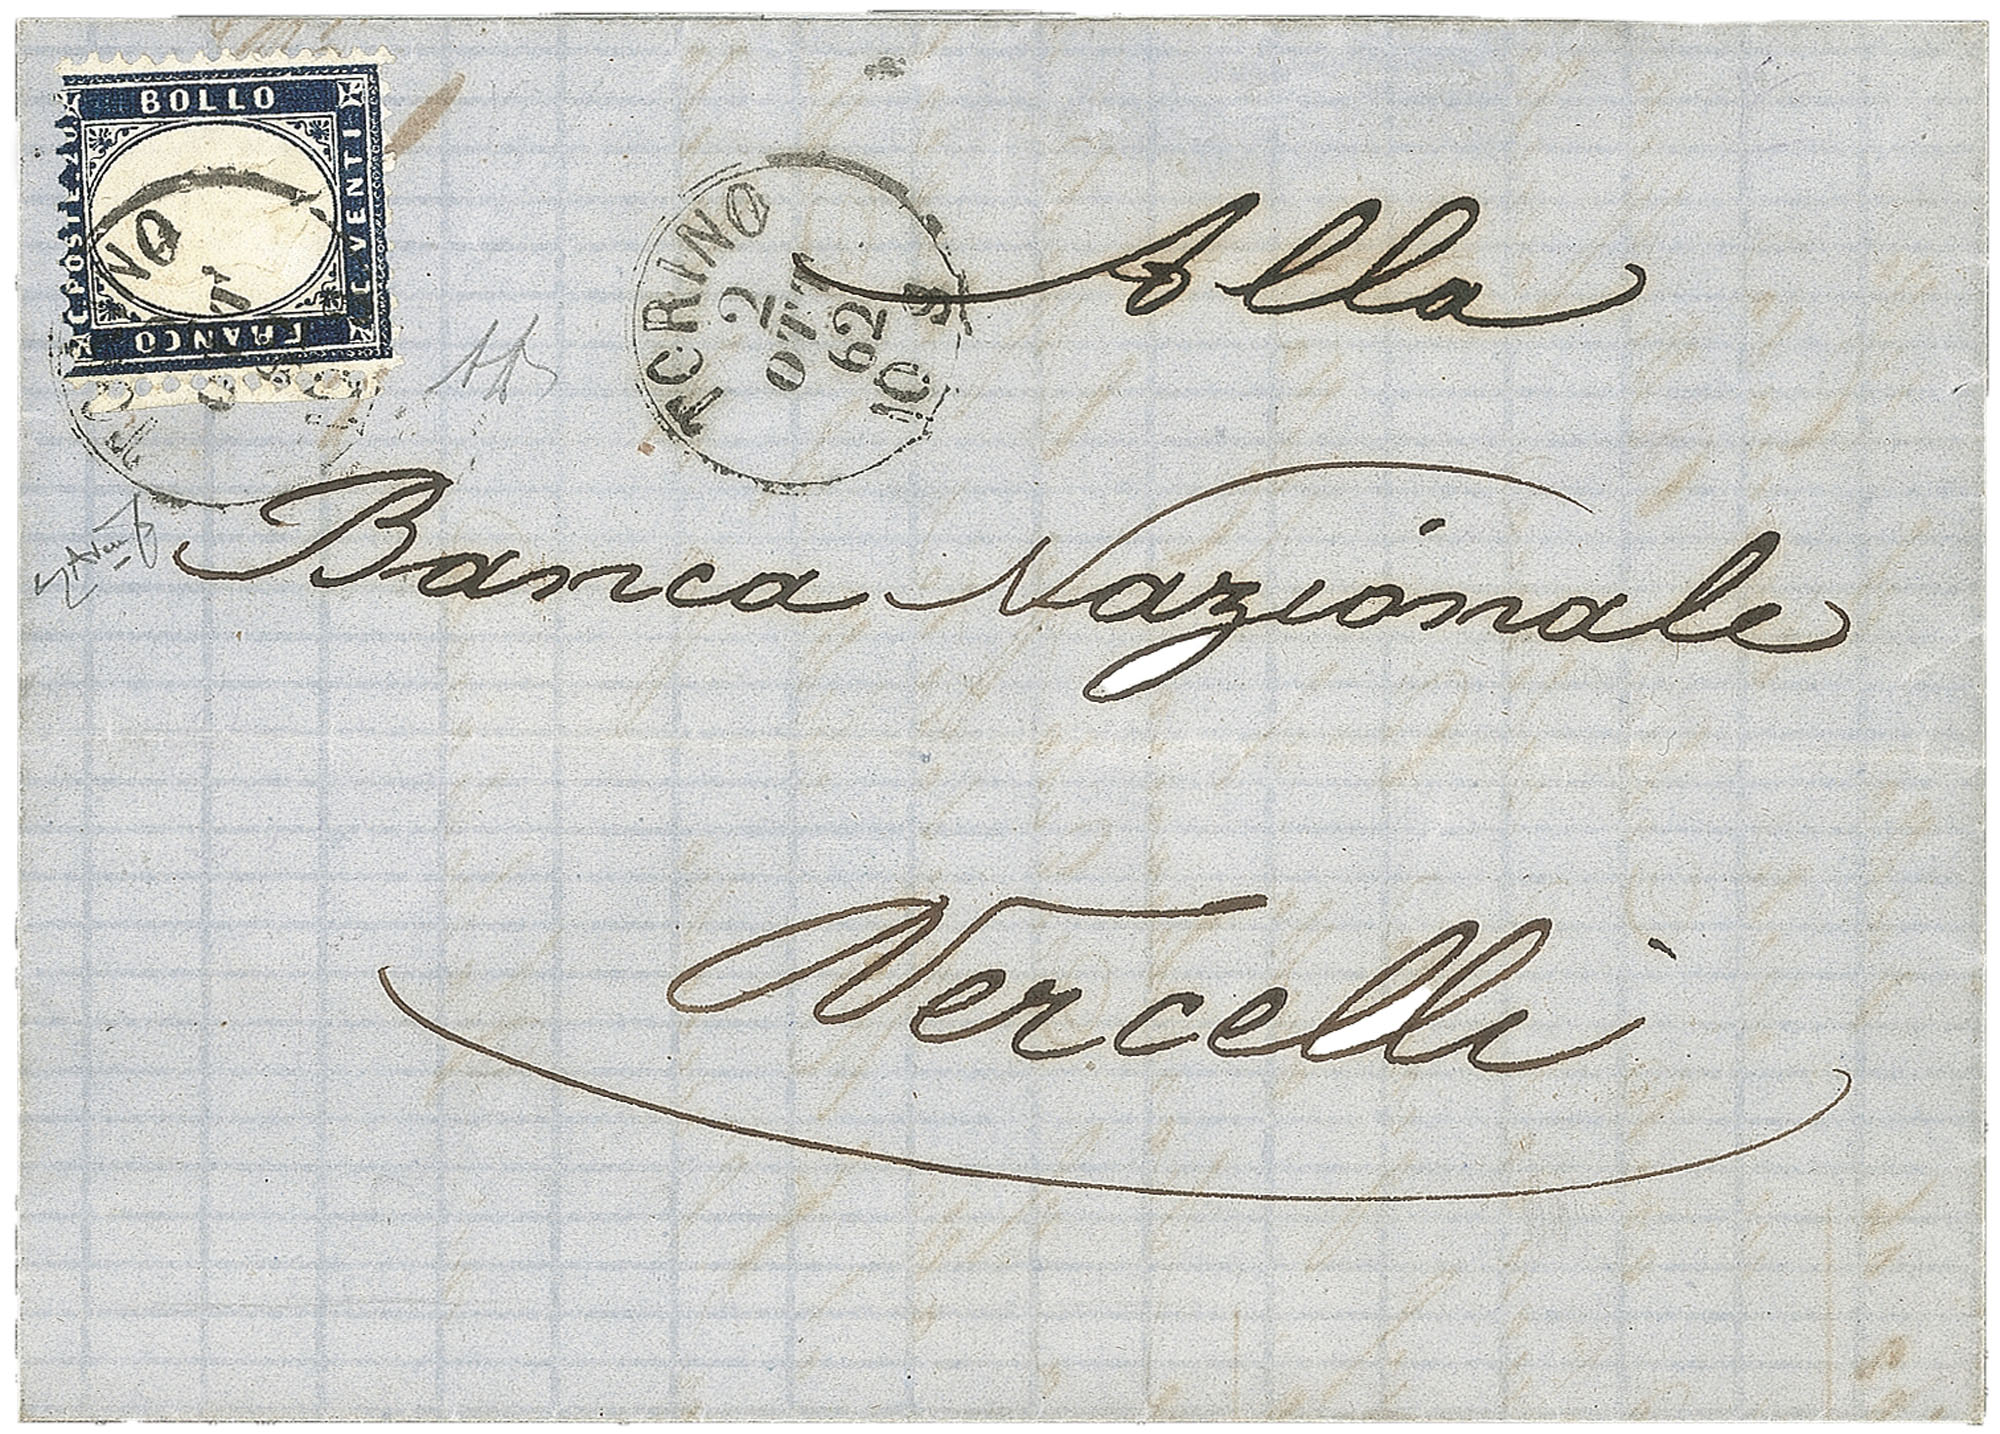 BOLLO
C. POSTE
C. VENTI
FRANCO
TORINO
2
OTT
62
10 S
Alla
Banca Nazionale
Vercelli